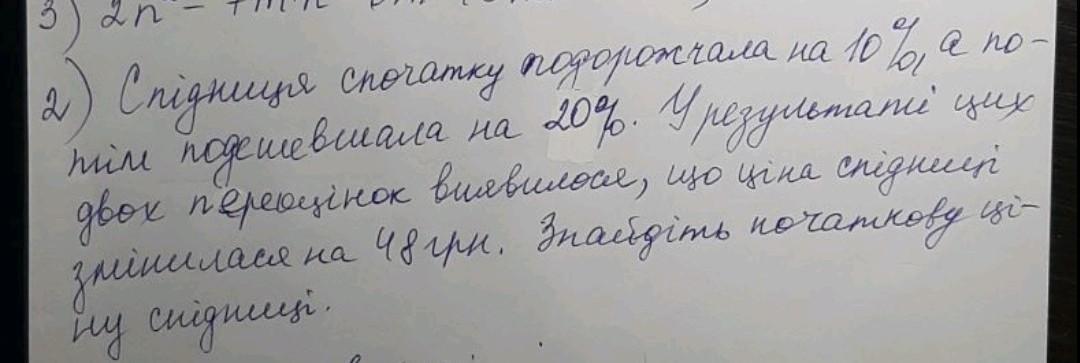 3) 2n
2) Спідниця спочатку подорожчала на 10%, а по-
тім подешевшала на 20%. У результаті цих
двох переоцінок виявилося, що ціна спідниці
змінилася на 48 грн. Знайдіть початкову ці-
ну спідниці.